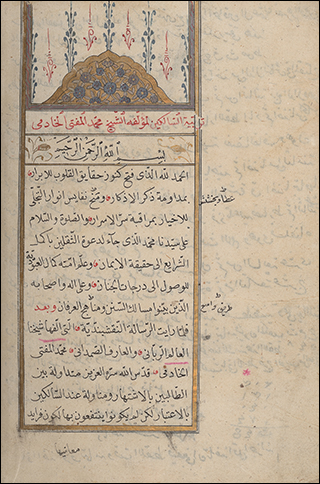 تربية السالكين لمؤلفه الشيخ محمد المفتي الخادمي
بسم الله الرحمن الرحيم
الحمد لله الذي فتح كنوز حقايق القلوب للابرار
بمداومة ذكر الاذكار ومنح نفايس انوار التجلي
للاخيار بمراقبة سر الاسرار والصلوة والسلام
على سيدنا محمد الذي جاء لدعوة الثقلين باكمل
الشرايع الى حقيقة الايمان وعلم امته كمال
للوصول الى درجات الجنان وعلى اله واصحابه
الذين بينوا مسالك السنن ومناهج العرفان وبعد
فلما رايت الرسالة النقشبندية التي الفها شيخنا
العالم الرباني والعارف الصمداني محمد المفتي
الخادمي قدس الله سره العزيز متداولة بين
الطالبين بالاشتهار ومتناولة عند السالكين
بالاعتبار لكن لم يكونوا ينتفعون بها لكون فرايد
معانيها